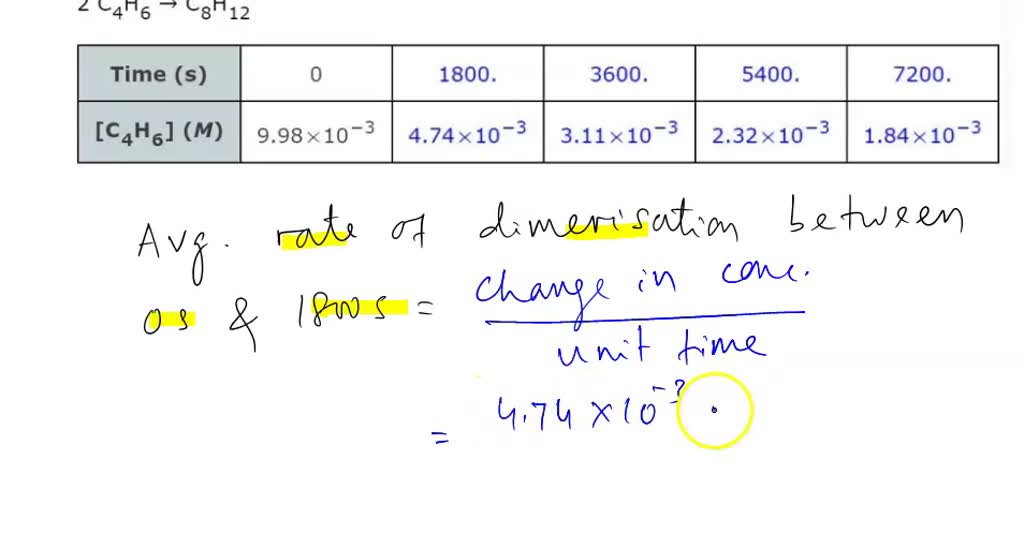 2 C₄H₆ → C₈H₁₂
Time (s) 0 1800. 3600. 5400. 7200.
[C₄H₆] (M) 9.98×10⁻³ 4.74×10⁻³ 3.11×10⁻³ 2.32×10⁻³ 1.84×10⁻³
Avg. rate of dimerisation between
0s & 1800s = change in conc.
unit time
= 4.74 × 10⁻³